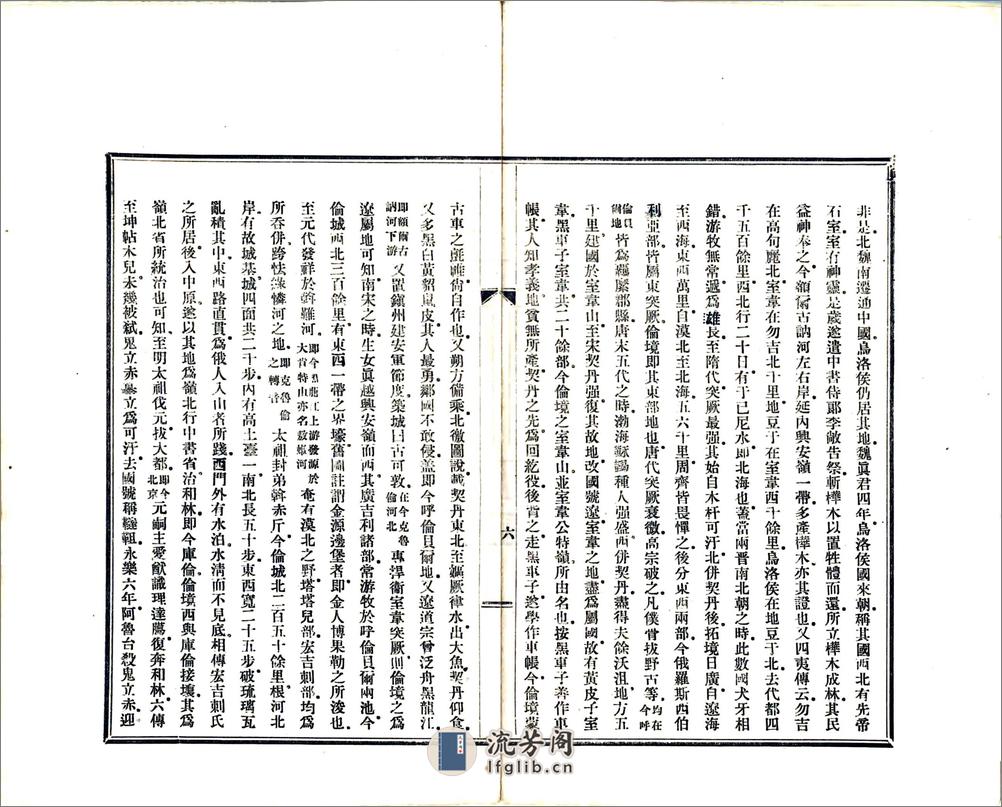 非是北魏南遷通中國烏洛侯仍居其地魏眞君四年烏洛侯國來朝稱其國西北有先帝
石室室有神靈是歲遂遣中書侍郎李敞告祭斬樺木以置牲體而還所立樺木成林其民
益神奉之今額爾古訥河左右岸延內興安嶺一帶多產樺木亦其證也又四夷傳云勿吉
在高句麗北室韋在勿吉北千里地豆于在室韋西千餘里烏洛侯在地豆于北去代都四
千五百餘里西北行二十日有于已尼水即北海也蓋當兩晋南北朝之時此數國犬牙相
錯游牧無常遞爲雄長至隋代突厥最强其始自木杆可汗北併契丹後拓境日廣自遼海
至西海東西萬里自漠北至北海五六千里周齊皆畏憚之後分東西兩部今俄羅斯西伯
利亞部皆屬東突厥倫境即其東部地也唐代突厥衰微高宗破之凡僕骨拔野古等均在今呼
倫貝爾地皆爲羈縻郡縣唐末五代之時渤海靺鞨種人强盛西併契丹盡得夫餘沃沮地方五
千里建國於室韋山至宋契丹强復其故地改國號遼室韋之地盡爲屬國故有黃皮子室
韋黑車子室韋共二十餘部今倫境之室韋山並室韋公特嶺所由名也按黑車子善作車
帳其人知孝義地貧無所產契丹之先爲回紇役後背之走黑車子遂學作車帳今倫境蒙
六
古車之氈帷尙自作也又朔方備乘北徼圖說載契丹東北至韈厥律水出大魚契丹仰食
又多黑白黃貂鼠皮其人最勇鄰國不敢侵蓋即今呼倫貝爾地又遼道宗曾泛舟黑龍江
即額爾古訥河下游又置鎮州建安軍節度築城曰古可敦在今克魯倫河北專溤衛室韋突厥則倫境之爲
遼屬地可知南宋之時生女眞越興安嶺而西其廣吉利諸部常游牧於呼倫貝爾兩池今
倫城西北三百餘里有東西一帶之界壕舊圖註謂金源邊堡者即金人博果勒之所浚也
至元代發祥於斡難河即今黑龍江上游發源於大肯特山亦名敖嫩河奄有漠北之野塔塔兒部宏吉剌部均爲
所呑併跨怯綠憐河之地即克魯倫之轉音太祖封弟斡赤斤今倫城北二百五十餘里根河北
岸有故城基城四面共二千步內有高土臺一南北長五十步東西寬二十五步破琉璃瓦
亂積其中東西路直貫爲俄人入山者所踐西門外有水泊水清而不見底相傳宏吉剌氏
之所居後入中原遂以其地爲嶺北行中書省治和林即今庫倫倫境西與庫倫接壤其爲
嶺北省所統治也可知至明太祖伐元拔大都即今北京元嗣主愛猷識理達臈復奔和林六傳
至坤帖木兒未幾被弑鬼立赤立爲可汗去國號稱韃靼永樂六年阿魯台殺鬼立赤迎
流芳阁
lfglib.cn